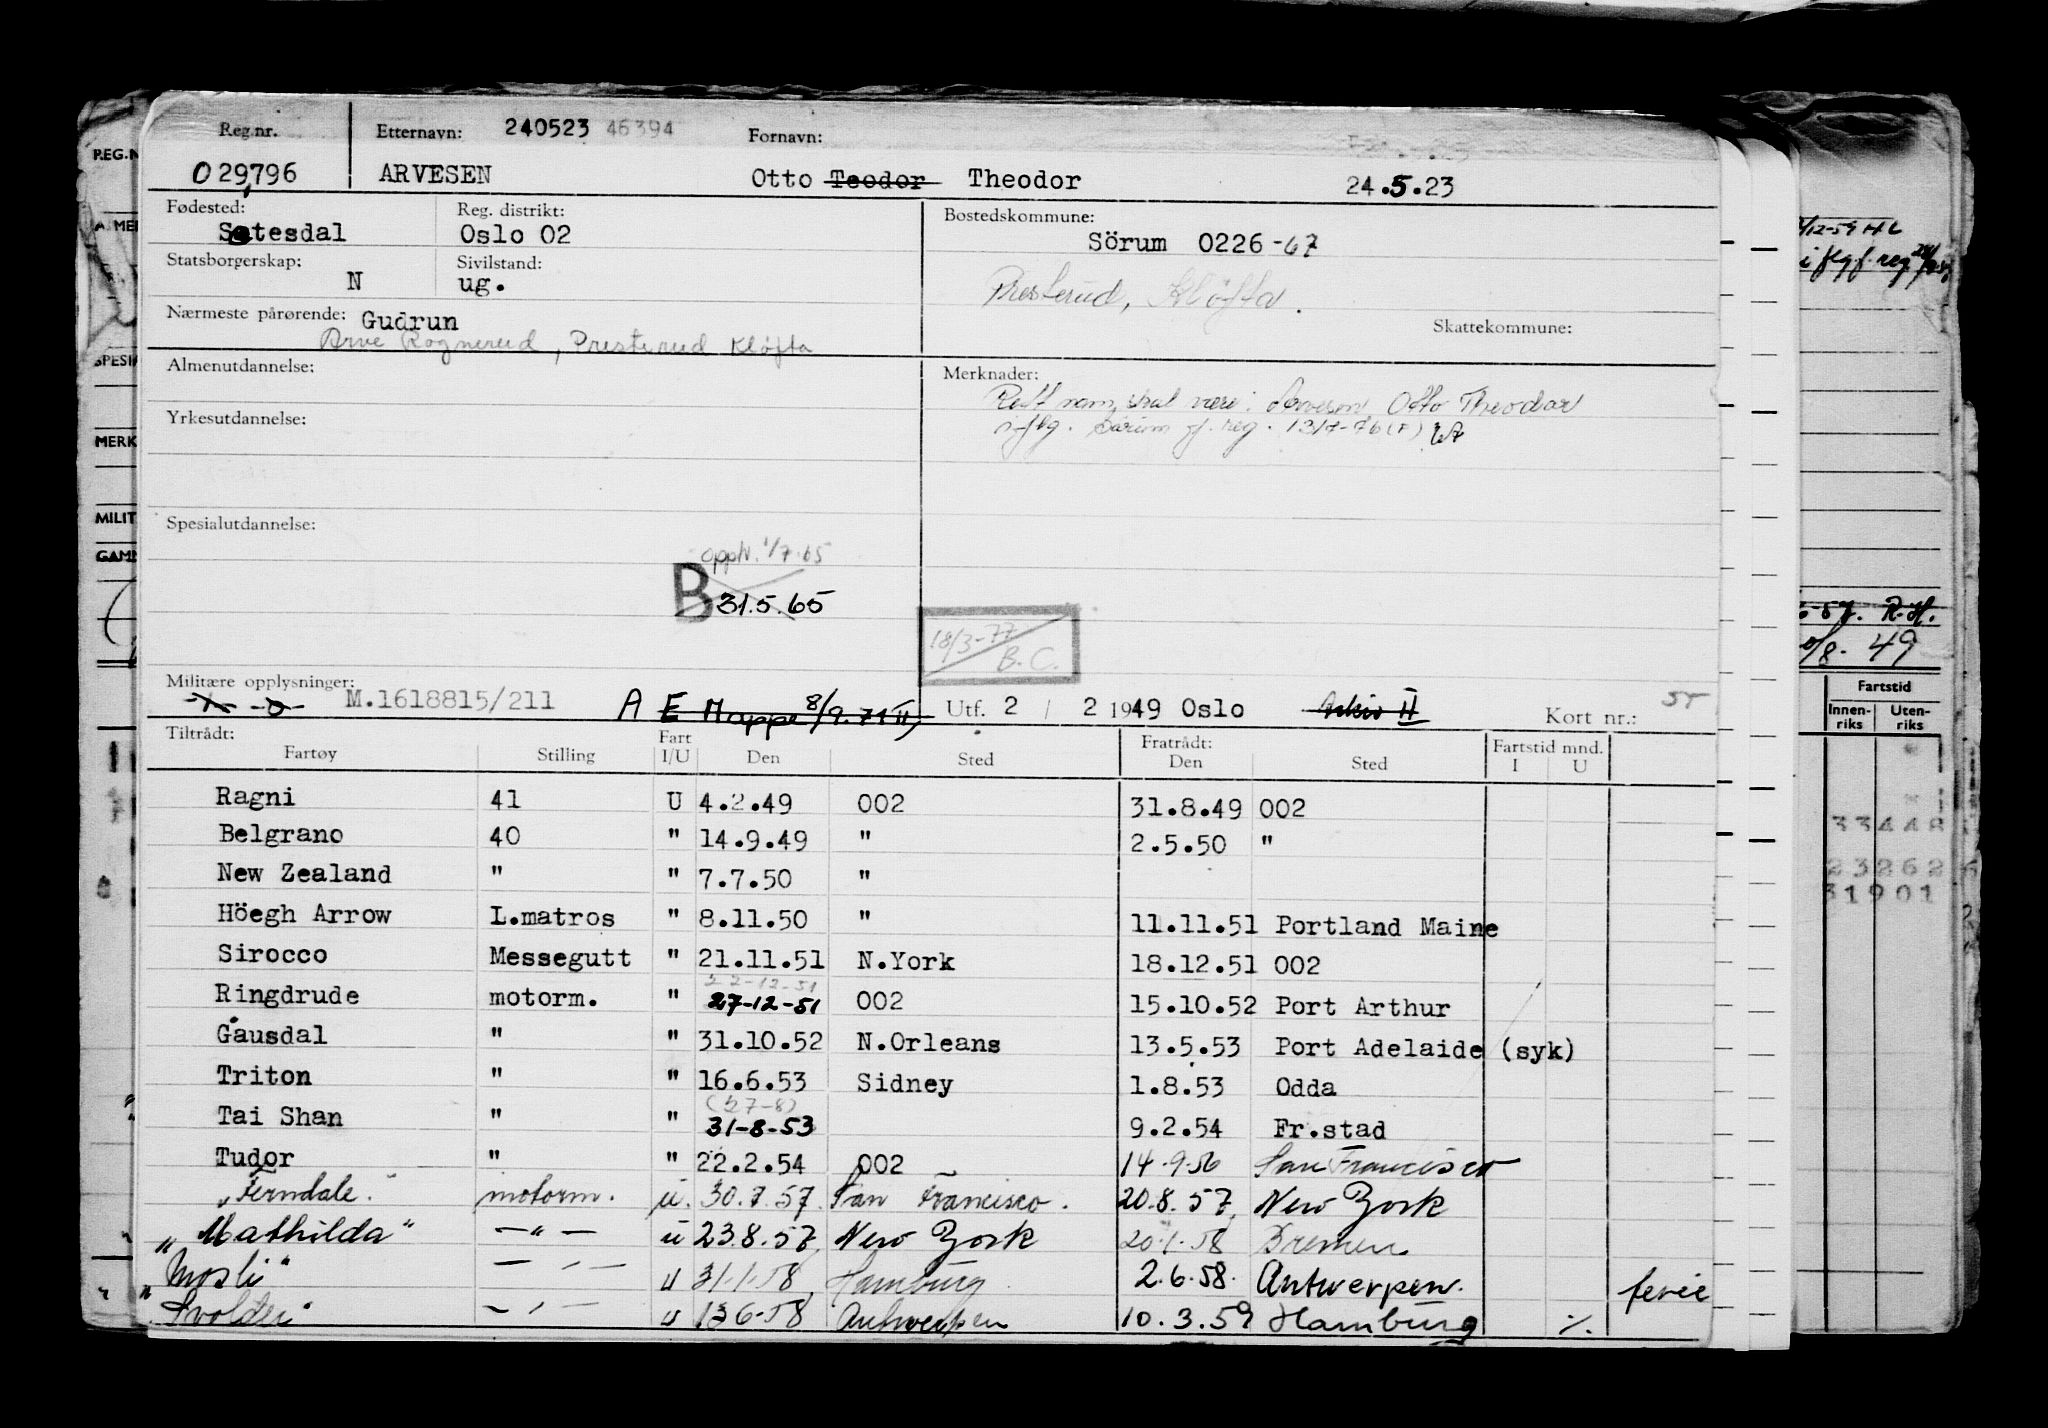 Reg.nr. Etternavn: 240523 46394 Fornavn:
029796 ARVESEN Otto Teodor Theodor 24.5.23
Fødested: Reg. distrikt: Bostedskommune:
Setesdal Oslo 02 Sörum 0226-67
Statsborgerskap: Sivilstand:
N ug. Presterud, Kløfta.
Nærmeste pårørende: Gudrun Skattekommune:
Arve Rognerud, Presterud Kløfta
Almenutdannelse: Merknader:
Rett navn skal være: Arvesen, Otto Theodor
Yrkesutdannelse: flg. Sørum f. reg. 13/7-76 (F)
Spesialutdannelse:
Opph. 1/7.65
B 31.5.65
18/3-77
B.C.
Militære opplysninger: M.1618815/211 A E Mappe 8/9.71 II Utf. 2 / 2 1949 Oslo Arkiv II Kort nr.:
Tiltrådt: Fartøy Stilling Fart I/U Den Sted Fratrådt: Den Sted Fartstid mnd. I U
Ragni 41 U 4.2.49 002 31.8.49 002
Belgrano 40 " 14.9.49 " 2.5.50 "
New Zealand " " 7.7.50 "
Höegh Arrow L.matros " 8.11.50 " 11.11.51 Portland Maine
Sirocco Messegutt " 21.11.51 N.York 18.12.51 002
22-12-51
Ringdrude motorm. " 27-12-51 002 15.10.52 Port Arthur
Gausdal " " 31.10.52 N.Orleans 13.5.53 Port Adelaide (syk)
Triton " " 16.6.53 Sidney 1.8.53 Odda
(27-8)
Tai Shan " " 31-8-53 9.2.54 Fr.stad
Tudor " " 22.2.54 002 14-9-56 San Francisco
"Ferndale." motorm. u. 30.7.57. San Francisco. 20.8.57, New York
"Mathilda" —"— u 23.8.57, New York 20.1.58 Bremen
"Mosli" —"— u 31.1.58, Hamburg 2.6.58. Antwerpen. ferie
"Svolder" —"— u 13.6.58 Antwerpen 10.3.59 Hamburg %
REG.N
SPESIA
MERK
MILIT
GAMM
i flg.f. reg
R.H.
49
Fartstid
Innen-riks Uten-riks
33448
23262
31901